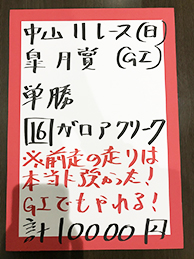 中山11レース(日)
皐月賞(GI)
単勝
16 ガロアクリーク
※前走の走りは
本当に強かった!
GIでもやれる!
計10000円